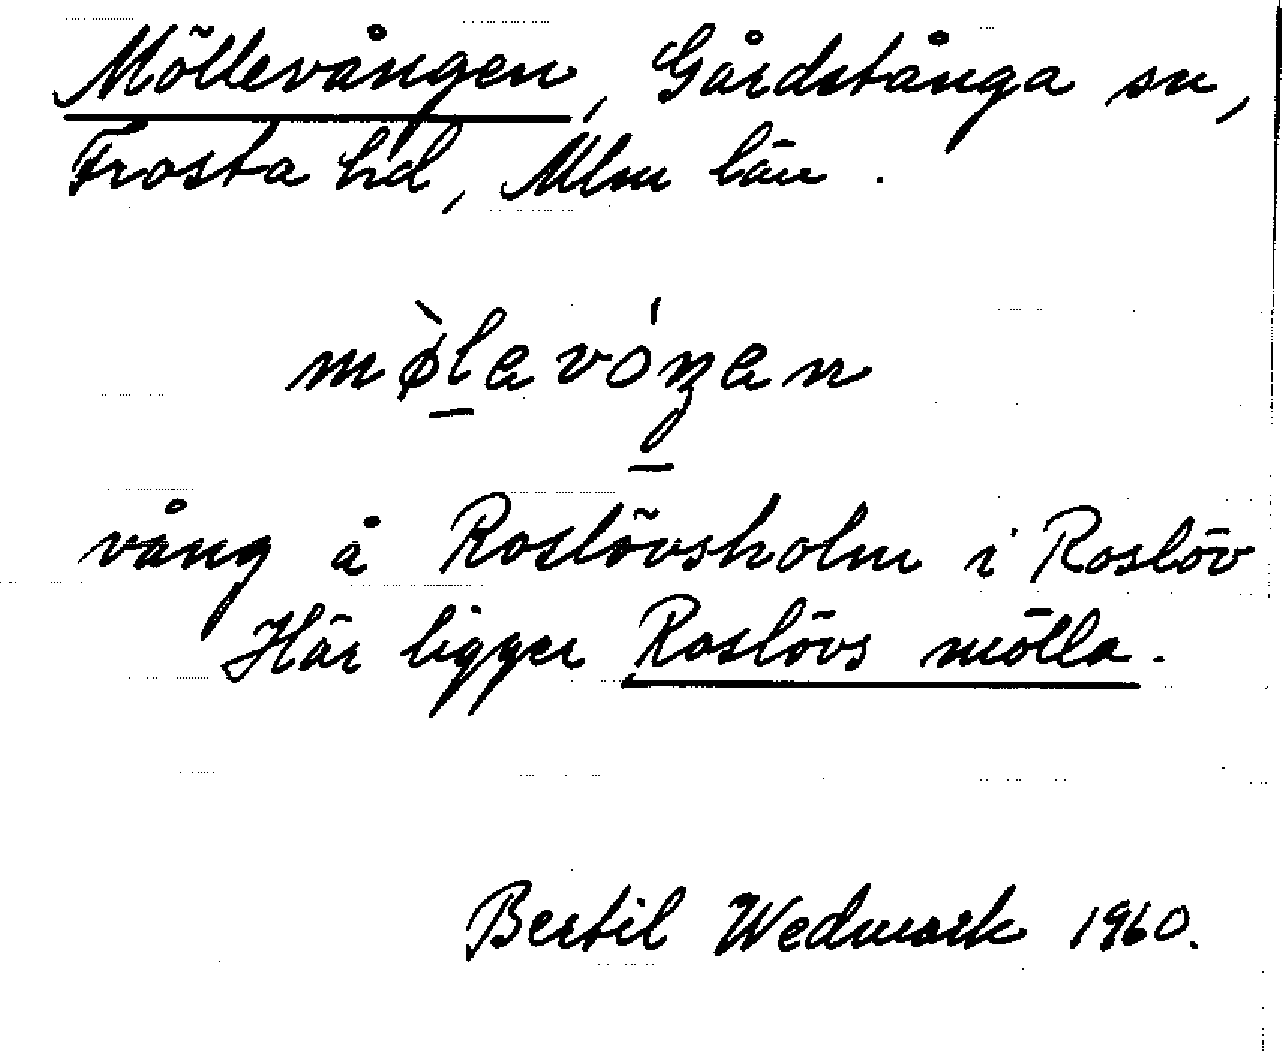 Möllevången, Gårdstånga sn,
Frosta hd, Mlm län.
mø̀lavóŋan
vång å Roslövsholm i Roslöv
Här ligger Roslövs mölla.
Bertil Wedmark 1960.